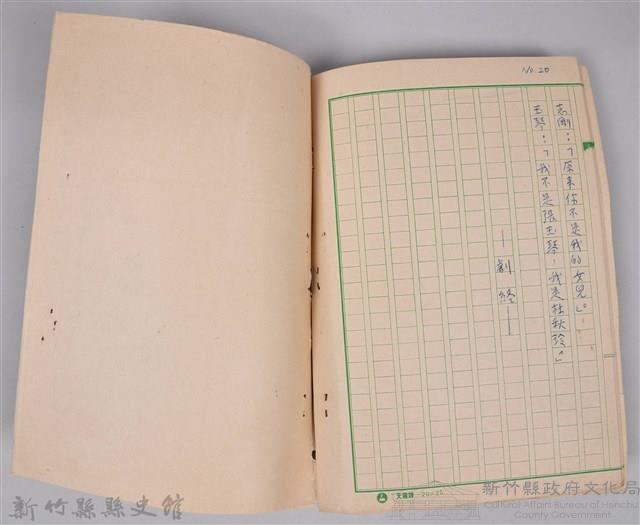 No. 20
志剛：「原来你不是我的女兒」。
玉琴：「我不是張玉琴，我是杜秋玲。」
—劇終—
天鵝牌 20×25
新竹縣縣史館
新竹縣政府文化局
Cultural Affairs Bureau of Hsinchu
County Government